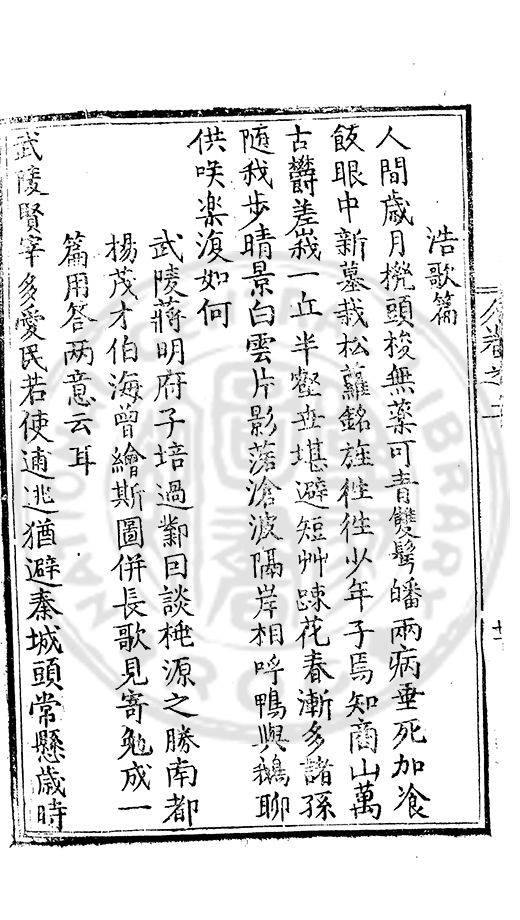 浩歌篇
人間歲月攪頭梭無藥可青雙鬢皤兩病垂死加飡
飯眼中新墓栽松蘿銘旌徃徃少年子焉知商山萬
古欝差峩一丘半壑堪避短艸踈花春漸多諸孫
隨我步晴景白雲片影落滄波隔岸相呼鴨與鵝聊
供咲楽復如何
武陵蔣明府子培過鄴囬談桃源之勝南都
楊茂才伯海曾繪斯圖併長歌見寄勉成一
篇用答兩意云耳
武陵賢宰多愛民若使逋逃猶避秦城頭常懸歲時